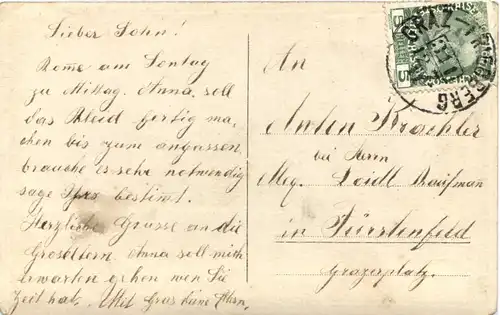 Lieber Sohn!
Kome am Sontag
zu Mittag. Anna soll
das Kleid fertig ma-
chen bis zum angassen,
brauche es sehr notwendig
sage Ihr bestimt.
Herzliche Grüsse an die
Groseltern Anna soll mich
erwarten gehen wen Sie
Zeit hat. Mit Grus
An
Anton
bei Herrn
Meg. Loidl Kaufman
in Fürstenfeld
Grazerplatz.
5 5
GRAZ-FRIEDBERG